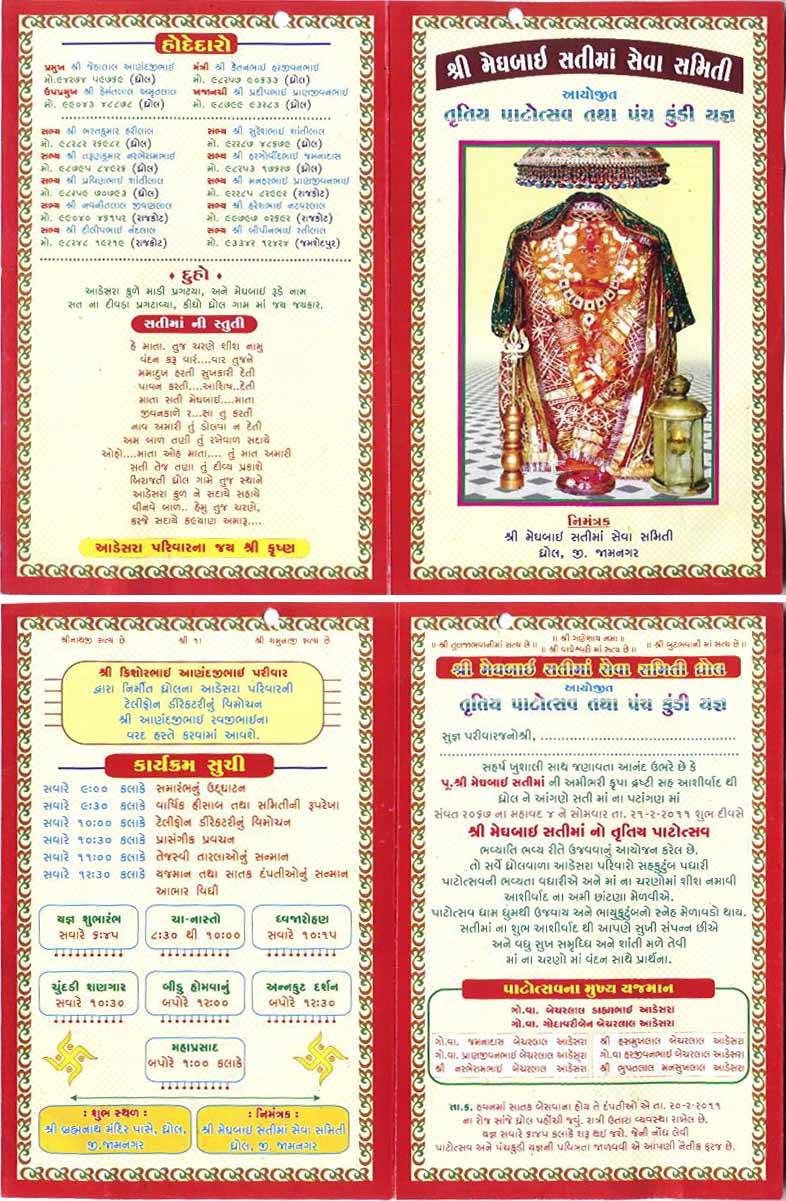 હોદેદારો
પ્રમુખ શ્રી જેઠાલાલ આણંદજીભાઈ
મો. ૯૪૨૭૪ ૫૯૭૬૯ (ધ્રોલ)
ઉપપ્રમુખ શ્રી હેમંતલાલ અમૃતલાલ
મો. ૯૯૦૪૩ ૪૮૮૭૮ (ધ્રોલ)
મંત્રી શ્રી કેતનભાઈ હરજીવનભાઈ
મો. ૯૮૨૫૭ ૯૦૬૩૩ (ધ્રોલ)
ખજાનચી શ્રી પ્રદીપભાઈ પ્રાણજીવનભાઈ
મો. ૯૮૭૯૯ ૬૩૨૮૩ (ધ્રોલ)
સભ્ય શ્રી ભરતકુમાર હરીલાલ
મો. ૯૮૨૮૨ ૨૬૯૮૨ (ધ્રોલ)
સભ્ય શ્રી તરૂણકુમાર નરભેરામભાઈ
મો. ૯૮૭૯૫ ૮૪૯૨૬ (ધ્રોલ)
સભ્ય શ્રી પ્રવિણભાઈ શાંતીલાલ
મો. ૯૮૨૫૯ ૭૦૫૯૩ (ધ્રોલ)
સભ્ય શ્રી નવનીતલાલ જીવણલાલ
મો. ૯૯૦૪૦ ૪૬૧૫૨ (રાજકોટ)
સભ્ય શ્રી દીલીપભાઈ નંદલાલ
મો. ૯૮૨૪૮ ૧૦૨૧૯ (રાજકોટ)
સભ્ય શ્રી સુરેશભાઈ શાંતીલાલ
મો. ૯૨૨૮૭ ૪૮૬૭૯ (ધ્રોલ)
સભ્ય શ્રી હરગોવીંદભાઈ જમનાદાસ
મો. ૯૮૨૫૩ ૧૭૬૨૭ (ધ્રોલ)
સભ્ય શ્રી મનહરભાઈ પ્રાણજીવનભાઈ
મો. ૯૨૨૮૫ ૮૨૯૯૨ (રાજકોટ)
સભ્ય શ્રી હરેશભાઈ નટવરલાલ
મો. ૯૯૭૯૭ ૦૨૬૯૨ (રાજકોટ)
સભ્ય શ્રી બીપીનભાઈ રતીલાલ
મો. ૯૩૩૪૨ ૧૨૪૨૪ (જમશેદપુર)
દુહો
આડેસરા કુળે માડી પ્રગટયા, અને મેઘબાઈ રૂડે નામ
સત ના દીવડા પ્રગટાવ્યા, કીધો ધ્રોલ ગામ માં જય જયકાર.
સતીમાં ની સ્તુતી
હે માતા. તુજ ચરણે શીશ નામુ
વંદન કરૂ વારં....વાર તુજને
મમાદુખ હરતી સુખકારી દેતી
પાવન કરતી....આશિષ..દેતી
માતા સતી મેઘબાઈ....માતા
જીવનકાળે ર...ક્ષા તું કરતી
નાવ અમારી તું ડોલવા ન દેતી
અમ બાળ તણી તું રખેવાળ સદાયે
ઓહો....માતા ઓહ માતા.... તું માત અમારી
સતી તેજ તણા તું દીવ્ય પ્રકાશે
બિરાજતી ધ્રોલ ગામે તુજ સ્થાને
આડેસરા કુળ ને સદાયે સહાયે
વીનવે બાળ.. હેમુ તુજ ચરણે,
કરજે સદાયે કલ્યાણ અમારૂ....
આડેસરા પરિવારના જય શ્રી કૃષ્ણ
શ્રી મેઘબાઈ સતીમાં સેવા સમિતી
આયોજીત
તૃતિય પાટોત્સવ તથા પંચ કુંડી યજ્ઞ
નિમંત્રક
શ્રી મેઘબાઈ સતીમાં સેવા સમિતી
ધ્રોલ, જી. જામનગર
શ્રીનાથજી સત્ય છે શ્રી ૧। શ્રી યમુનાજી સત્ય છે
શ્રી કિશોરભાઈ આણંદજીભાઈ પરીવાર
દ્વારા નિર્મીત ધ્રોલના આડેસરા પરિવારની
ટેલીફોન ડીરેકટરીનું વિમોચન
શ્રી આણંદજીભાઈ રવજીભાઈના
વરદ હસ્તે કરવામાં આવશે.
કાર્યક્રમ સુચી
સવારે ૯:૦૦ કલાકે સમારંભનું ઉદ્ઘાટન
સવારે ૯:૩૦ કલાકે વાર્ષિક હીસાબ તથા સમિતીની રૂપરેખા
સવારે ૧૦:૦૦ કલાકે ટેલીફોન ડીરેકટરીનું વિમોચન
સવારે ૧૦:૩૦ કલાકે પ્રાસંગીક પ્રવચન
સવારે ૧૧:૦૦ કલાકે તેજસ્વી તારલાઓનું સન્માન
સવારે ૧૨:૩૦ કલાકે યજમાન તથા સાતક દંપતીઓનું સન્માન
આભાર વિધી
યજ્ઞ શુભારંભ
સવારે ૬:૪૫
ચા-નાસ્તો
૮:૩૦ થી ૧૦:૦૦
ધ્વજારોહણ
સવારે ૧૦:૧૫
ચુંદડી શણગાર
સવારે ૧૦:૩૦
બીડુ હોમવાનું
બપોરે ૧૨:૦૦
અન્નકુટ દર્શન
બપોરે ૧૨:૩૦
મહાપ્રસાદ
બપોરે ૧:૦૦ કલાકે
: શુભ સ્થળ :
શ્રી બ્રહ્મનાથ મંદિર પાસે, ધ્રોલ,
જી.જામનગર
: નિમંત્રક :
શ્રી મેઘબાઈ સતીમાં સેવા સમિતી
ધ્રોલ, જી. જામનગર
॥ શ્રી ગણેશાય નમઃ ॥
॥ શ્રી તુલજાભવાનીમાં સત્ય છે ॥ ॥ શ્રી વાઘેશ્વરી માં સત્ય છે ॥ ॥ શ્રી બુટભવાની માં સત્ય છે ॥
શ્રી મેઘબાઈ સતીમાં સેવા સમિતી ધ્રોલ
આયોજીત
તૃતિય પાટોત્સવ તથા પંચ કુંડી યજ્ઞ
સુજ્ઞ પરીવારજનોશ્રી,
સહર્ષ ખુશાલી સાથ જણાવતા આનંદ ઉભરે છે કે
પૂ.શ્રી મેઘબાઈ સતીમાં ની અમીભરી કૃપા દ્રષ્ટી સહ આશીર્વાદ થી
ધ્રોલ ને આંગણે સતી માં ના પટાંગણ માં
સંવત ૨૦૬૭ ના મહાવદ ૪ ને સોમવાર તા. ૨૧-૨-૨૦૧૧ શુભ દીવસે
શ્રી મેઘબાઈ સતીમાં નો તૃતિય પાટોત્સવ
ભવ્યાતિ ભવ્ય રીતે ઉજવવાનું આયોજન કરેલ છે.
તો સર્વે ધ્રોલવાળા આડેસરા પરિવારો સહકુટુંબ પધારી
પાટોત્સવની ભવ્યતા વધારીએ અને માં ના ચરણોમાં શીશ નમાવી
આશીર્વાદ ના અમી છાંટણા મેળવીએ.
પાટોત્સવ ધામ ધુમથી ઉજવાય અને ભાયુકુટુંબનો સ્નેહ મેળાવડો થાય.
સતીમાં ના શુભ આશીર્વાદ થી આપણે સુખી સંપન્ન છીએ
અને વધુ સુખ સમૃધ્ધિ અને શાંતી મળે તેવી
માં ના ચરણો માં વંદન સાથે પ્રાર્થના.
પાટોત્સવના મુખ્ય યજમાન
ગો.વા. બેચરલાલ ડાહ્યાભાઈ આડેસરા
ગો.વા. ગોદાવરીબેન બેચરલાલ આડેસરા
ગો.વા. જમનાદાસ બેચરલાલ આડેસરા
ગો.વા. પ્રાણજીવનભાઈ બેચરલાલ આડેસરા
શ્રી નરભેરામભાઈ બેચરલાલ આડેસરા
શ્રી હસમુખલાલ બેચરલાલ આડેસરા
ગો.વા હરજીવનભાઈ બેચરલાલ આડેસરા
શ્રી ભુપતલાલ મનસુખલાલ આડેસરા
તા.ક. હવનમાં સાતક બેસવાના હોય તે દંપતીઓ એ તા. ૨૦-૨-૨૦૧૧
ના રોજ સાંજે ધ્રોલ પહોંચી જવું. રાત્રી ઉતારા વ્યવસ્થા રાખેલ છે.
યજ્ઞ સવારે ૬:૪૫ કલાકે શરૂ થઈ જશે. જેની નોંધ લેવી
પાટોત્સવ અને પંચકુંડી યજ્ઞની પવિત્રતા જાળવવી એ આપણી નૈતીક ફરજ છે.